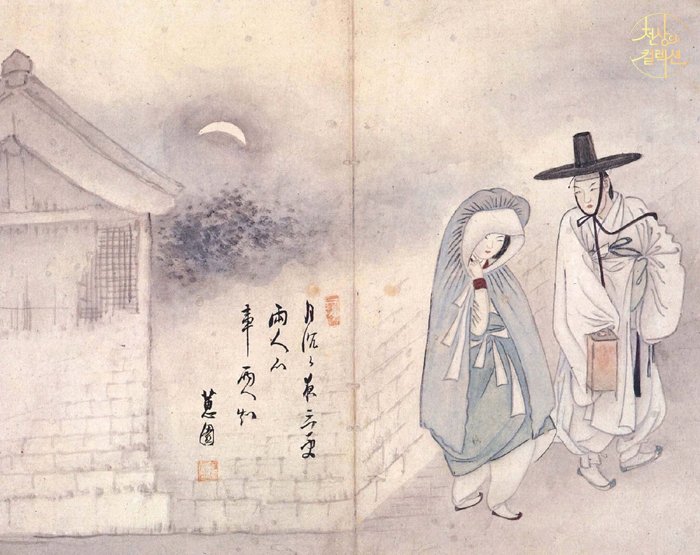 천상의
컬렉션
月沈〻夜三更
兩人心
事兩人知
蕙園